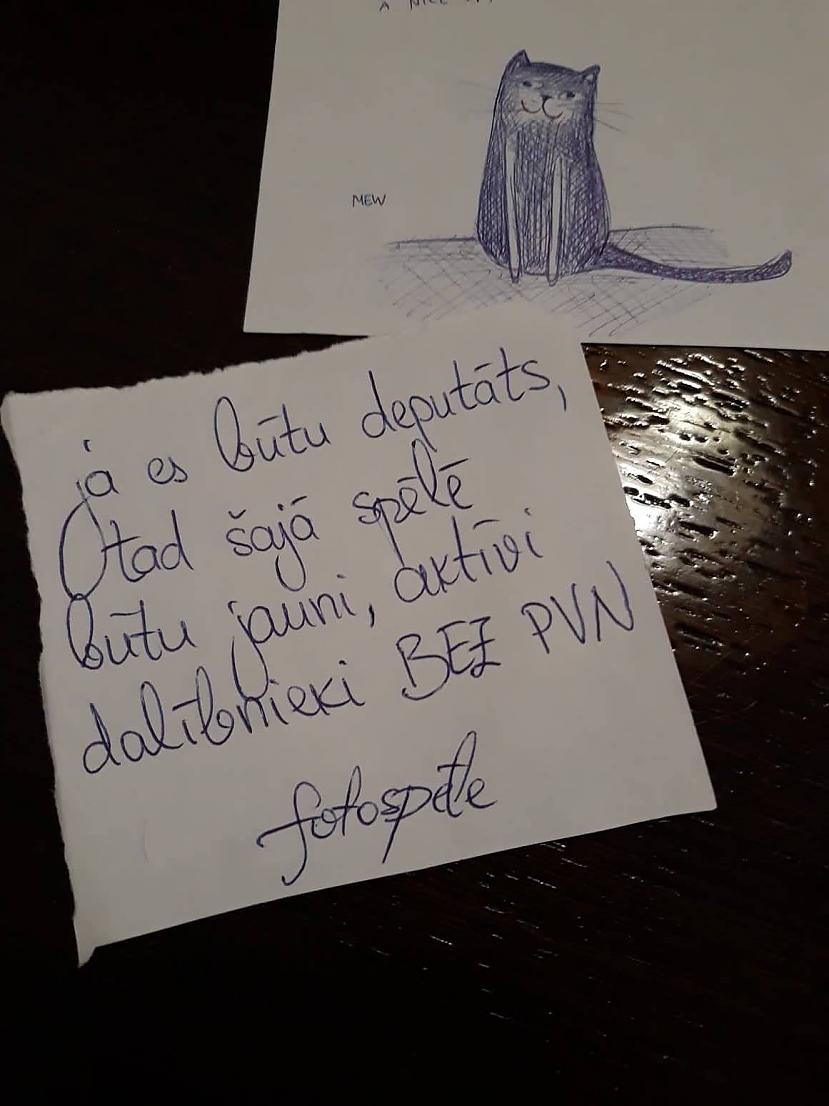 A NICE
MEW
ja es būtu deputāts,
tad šajā spēlē
būtu jauni, aktīvi
dalībnieki BEZ PVN
fotospēle